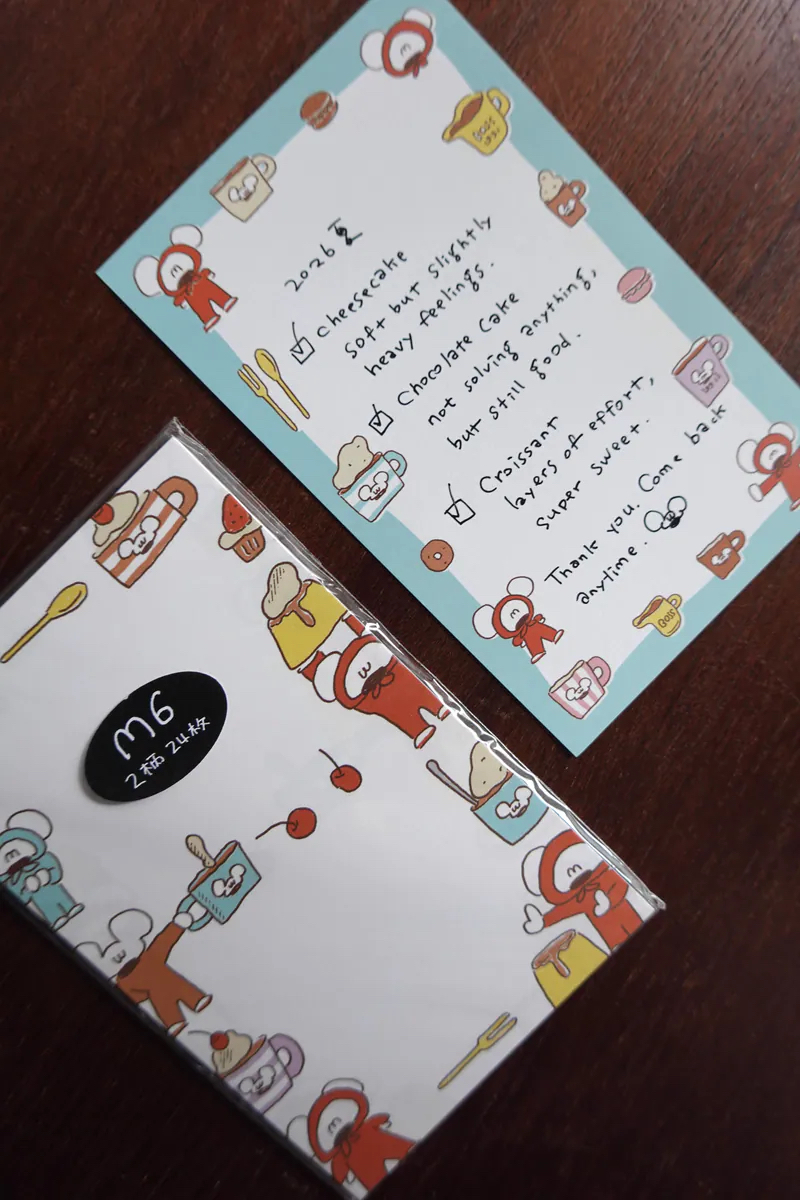 2026夏
☑ Cheesecake
soft but slightly
heavy feelings.
☑ Chocolate Cake
not solving anything,
but still good.
☑ Croissant
layers of effort,
super sweet.
Thank you. Come back
anytime.
BOSS
BOSS
M6
2柄 24枚